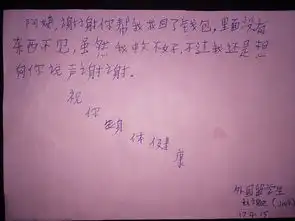 阿姨,谢谢你帮我找回了钱包,里面没有
东西不见,虽然我中文不好,不过我还是想
向你说声谢谢.
祝
你
身
体
健
康
外国留学生
(Jack)
17.9.15